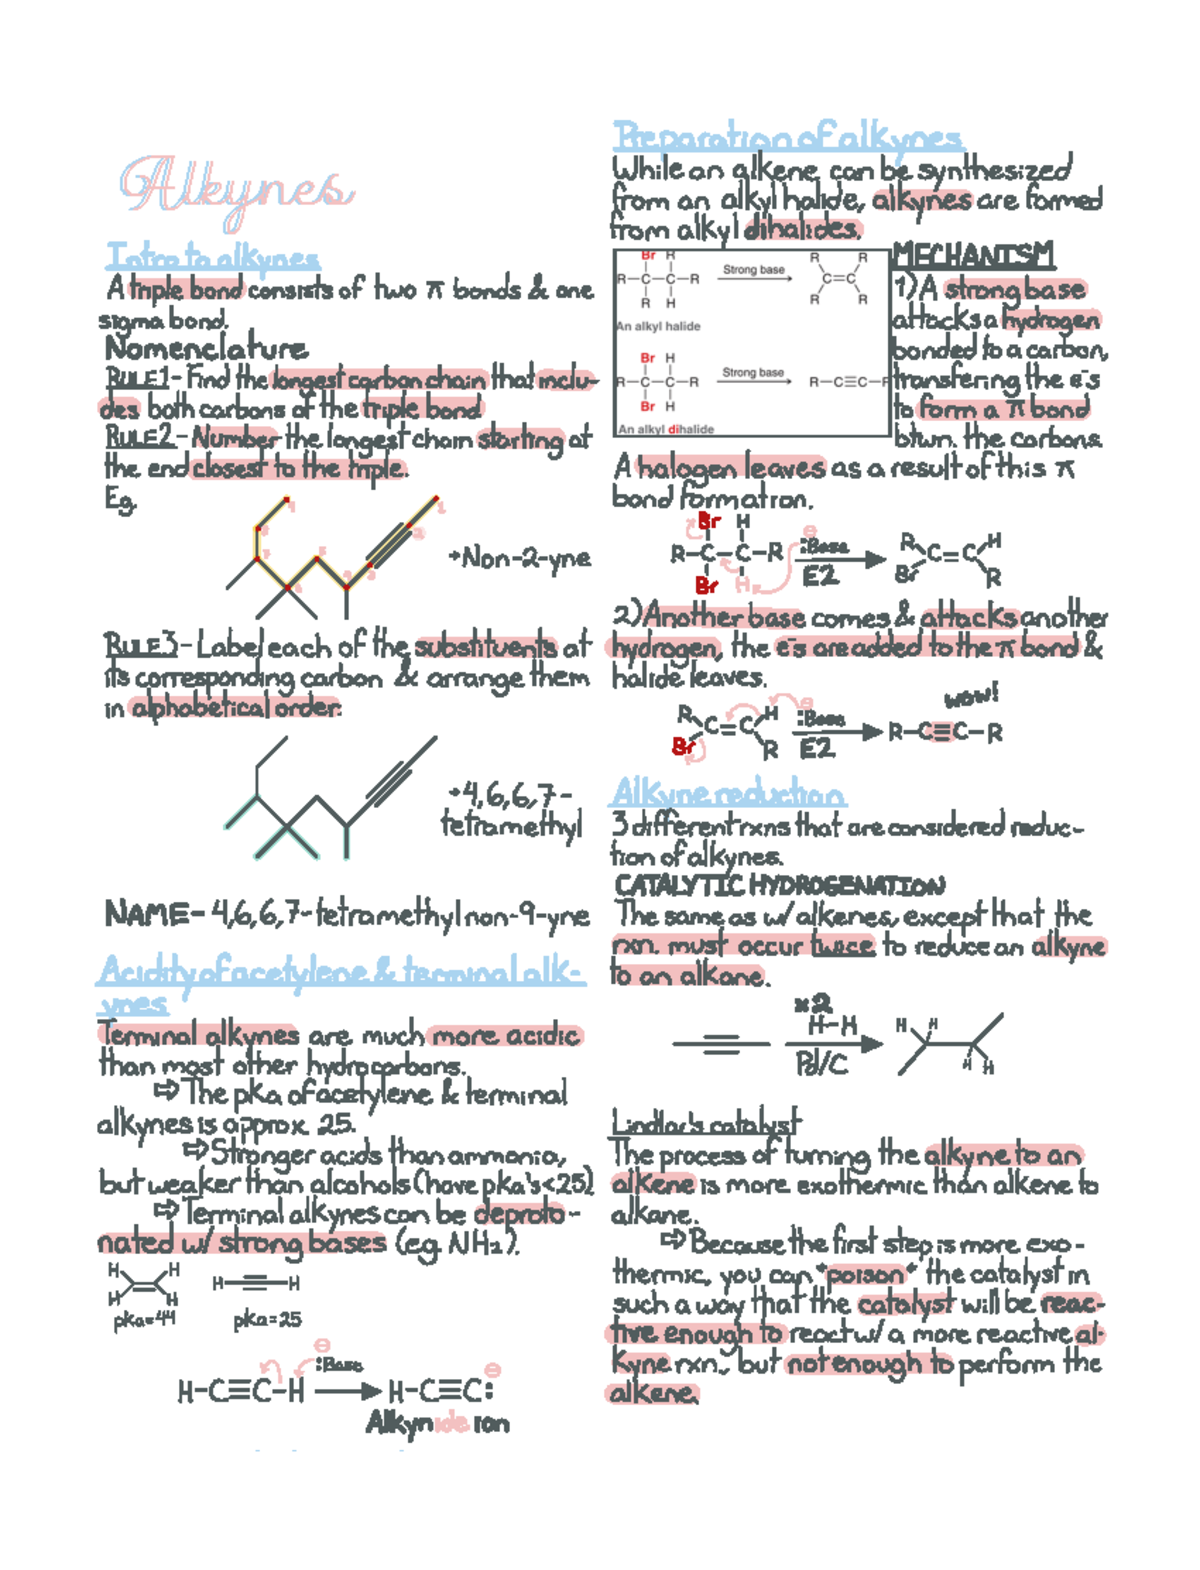 Alkynes
Intro to alkynes
A triple bond consists of two π bonds & one
sigma bond.
Nomenclature
RULE 1- Find the longest carbon chain that inclu-
des both carbons of the triple bond
RULE 2- Number the longest chain starting at
the end closest to the triple.
Eg.
→Non-2-yne
RULE 3- Label each of the substituents at
its corresponding carbon & arrange them
in alphabetical order:
→4,6,6,7-
tetramethyl
NAME- 4,6,6,7-tetramethylnon-9-yne
Acidity of acetylene & terminal alk-
ynes
Terminal alkynes are much more acidic
than most other hydrocarbons.
⇨The pka of acetylene & terminal
alkynes is approx. 25.
⇨Stronger acids than ammonia,
but weaker than alcohols (have pka's<25)
⇨Terminal alkynes can be deproto-
nated w/ strong bases (eg. NH2).
H H H-≡-H
H H
pka=44 pka=25
⊖
:Base
H-C≡C-H → H-C≡C:⊖
Alkynide ion
Preparation of alkynes
While an alkene can be synthesized
from an alkyl halide, alkynes are formed
from alkyl dihalides.
Br H R R
R-C-C-R Strong base C=C
R H R R
An alkyl halide
Br H
R-C-C-R Strong base R-C≡C-R
Br H
An alkyl dihalide
MECHANISM
1) A strong base
attacks a hydrogen
bonded to a carbon,
transfering the e⁻s
to form a π bond
btwn. the carbons.
A halogen leaves as a result of this π
bond formation.
Br H ⊖ R H
R-C-C-R :Base C=C
Br H E2 Br R
2) Another base comes & attacks another
hydrogen, the e⁻s are added to the π bond &
halide leaves.
wow!
R H ⊖
C=C :Base R-C≡C-R
Br R E2
Alkyne reduction
3 different rxns that are considered reduc-
tion of alkynes.
CATALYTIC HYDROGENATION
The same as w/ alkenes, except that the
rxn. must occur twice to reduce an alkyne
to an alkane.
x2
H-H H H
Pd/C H H
Lindlar's catalyst
The process of turning the alkyne to an
alkene is more exothermic than alkene to
alkane.
⇨Because the first step is more exo-
thermic, you can "poison" the catalyst in
such a way that the catalyst will be reac-
tive enough to react w/ a more reactive al-
kyne rxn., but not enough to perform the
alkene.